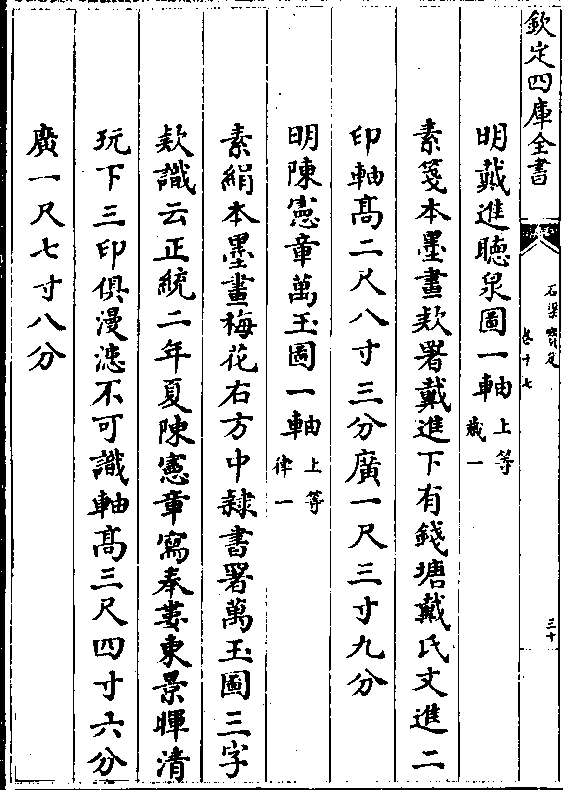 欽定四庫全書
石渠寶笈
卷十七
三十
明戴進聽泉圖一軸上等歲一
素箋本墨畫欵署戴進下有錢塘戴氏文進二
印軸高二尺八寸三分廣一尺三寸九分
明陳憲章萬玉圖一軸上等律一
素絹本墨畫梅花右方中隸書署萬玉圖三字
欵識云正統二年夏陳憲章寫奉婁東景暉清
玩下三印俱漫漶不可識軸高三尺四寸六分
廣一尺七寸八分